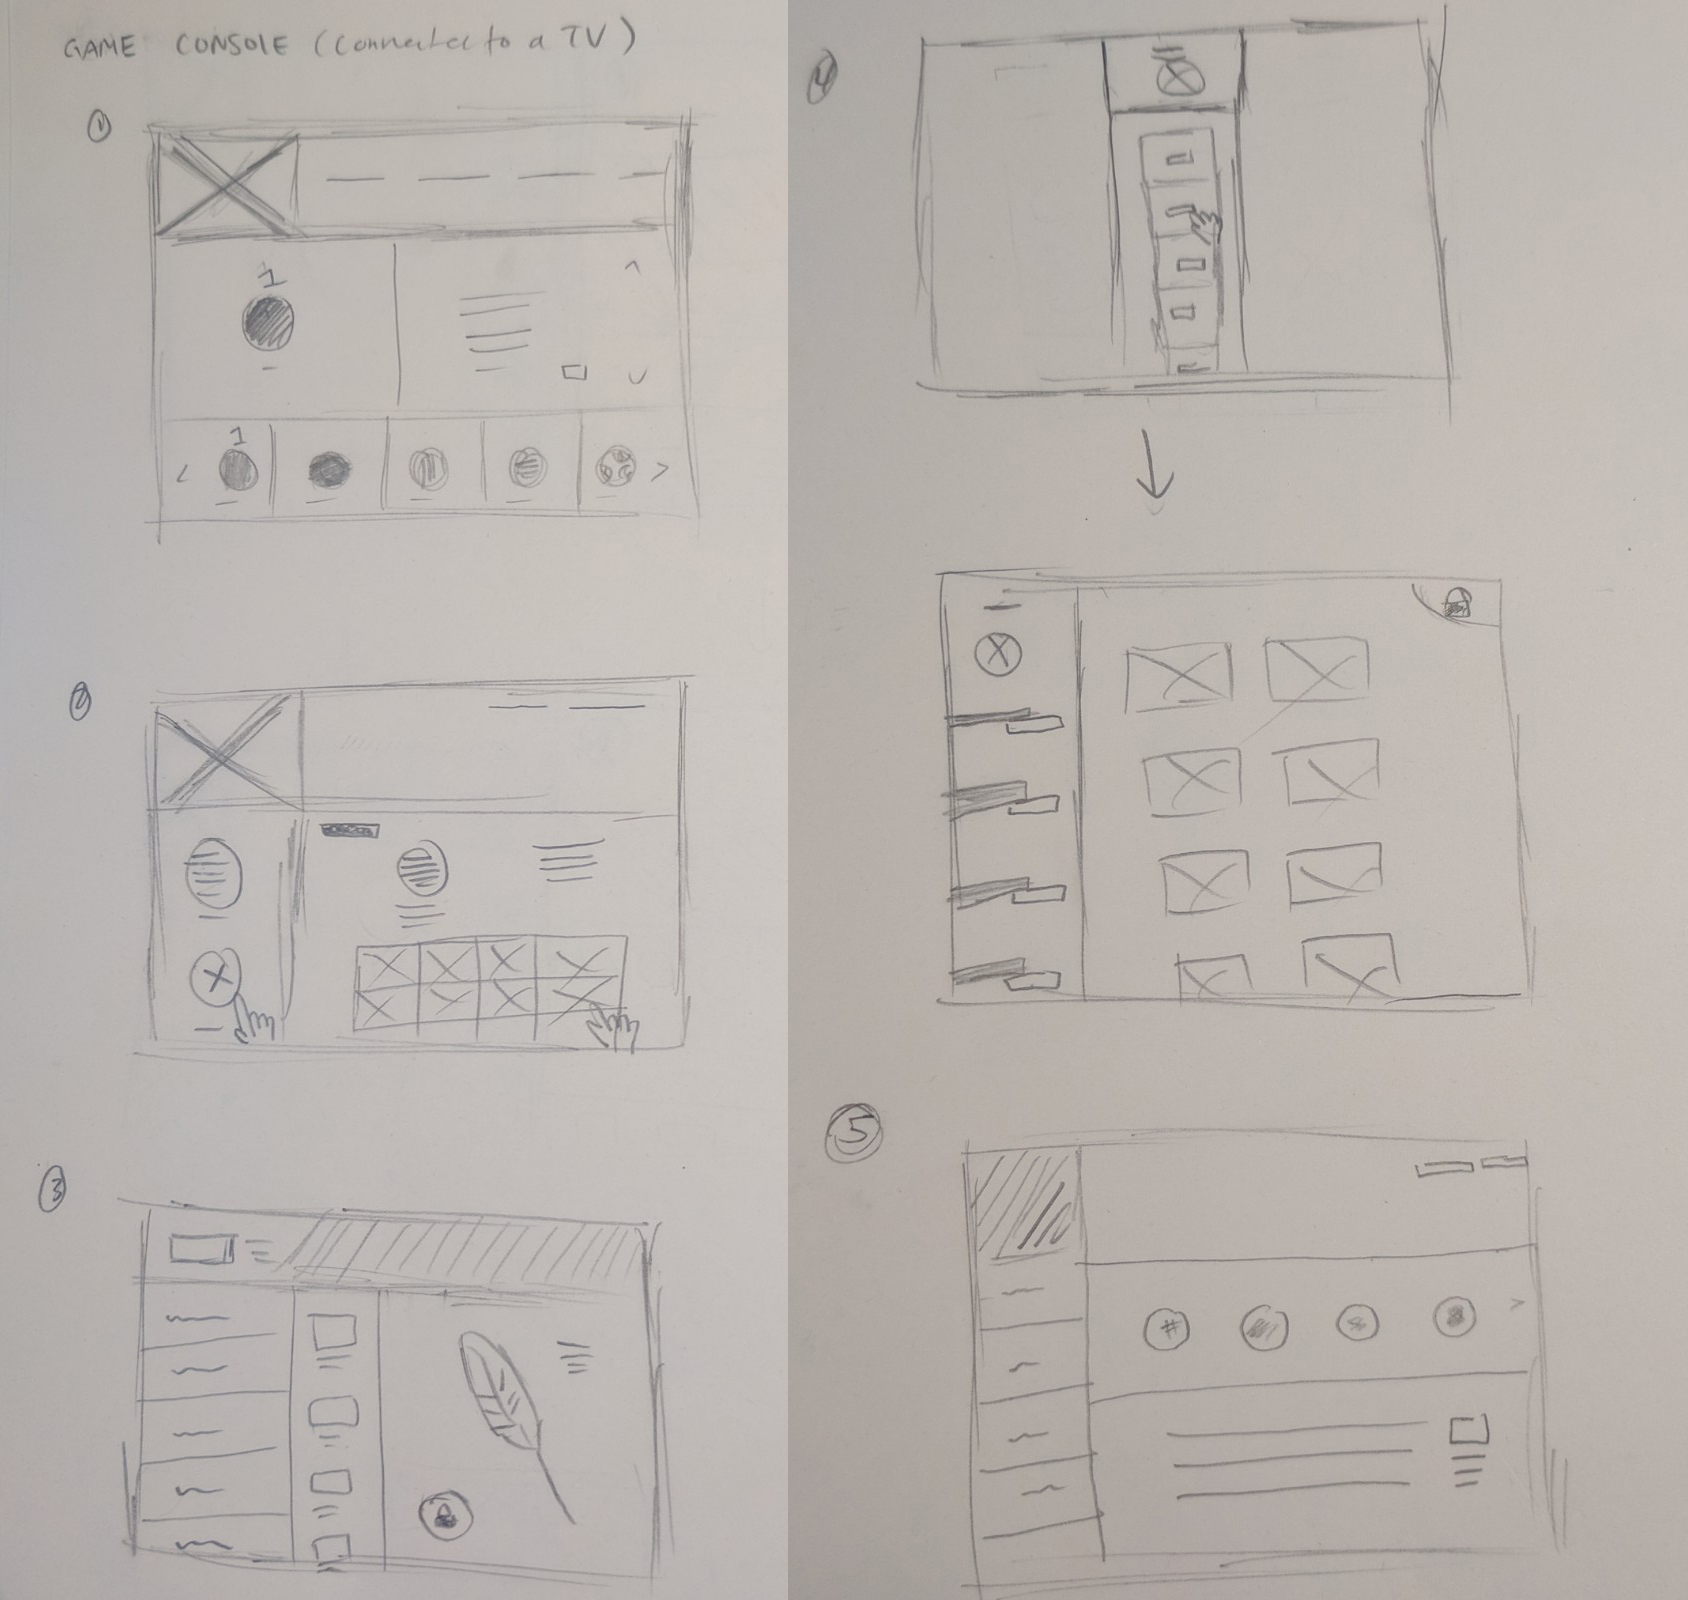 GAME CONSOLE (Connected to a TV)
1
1
1
2
3
4
5